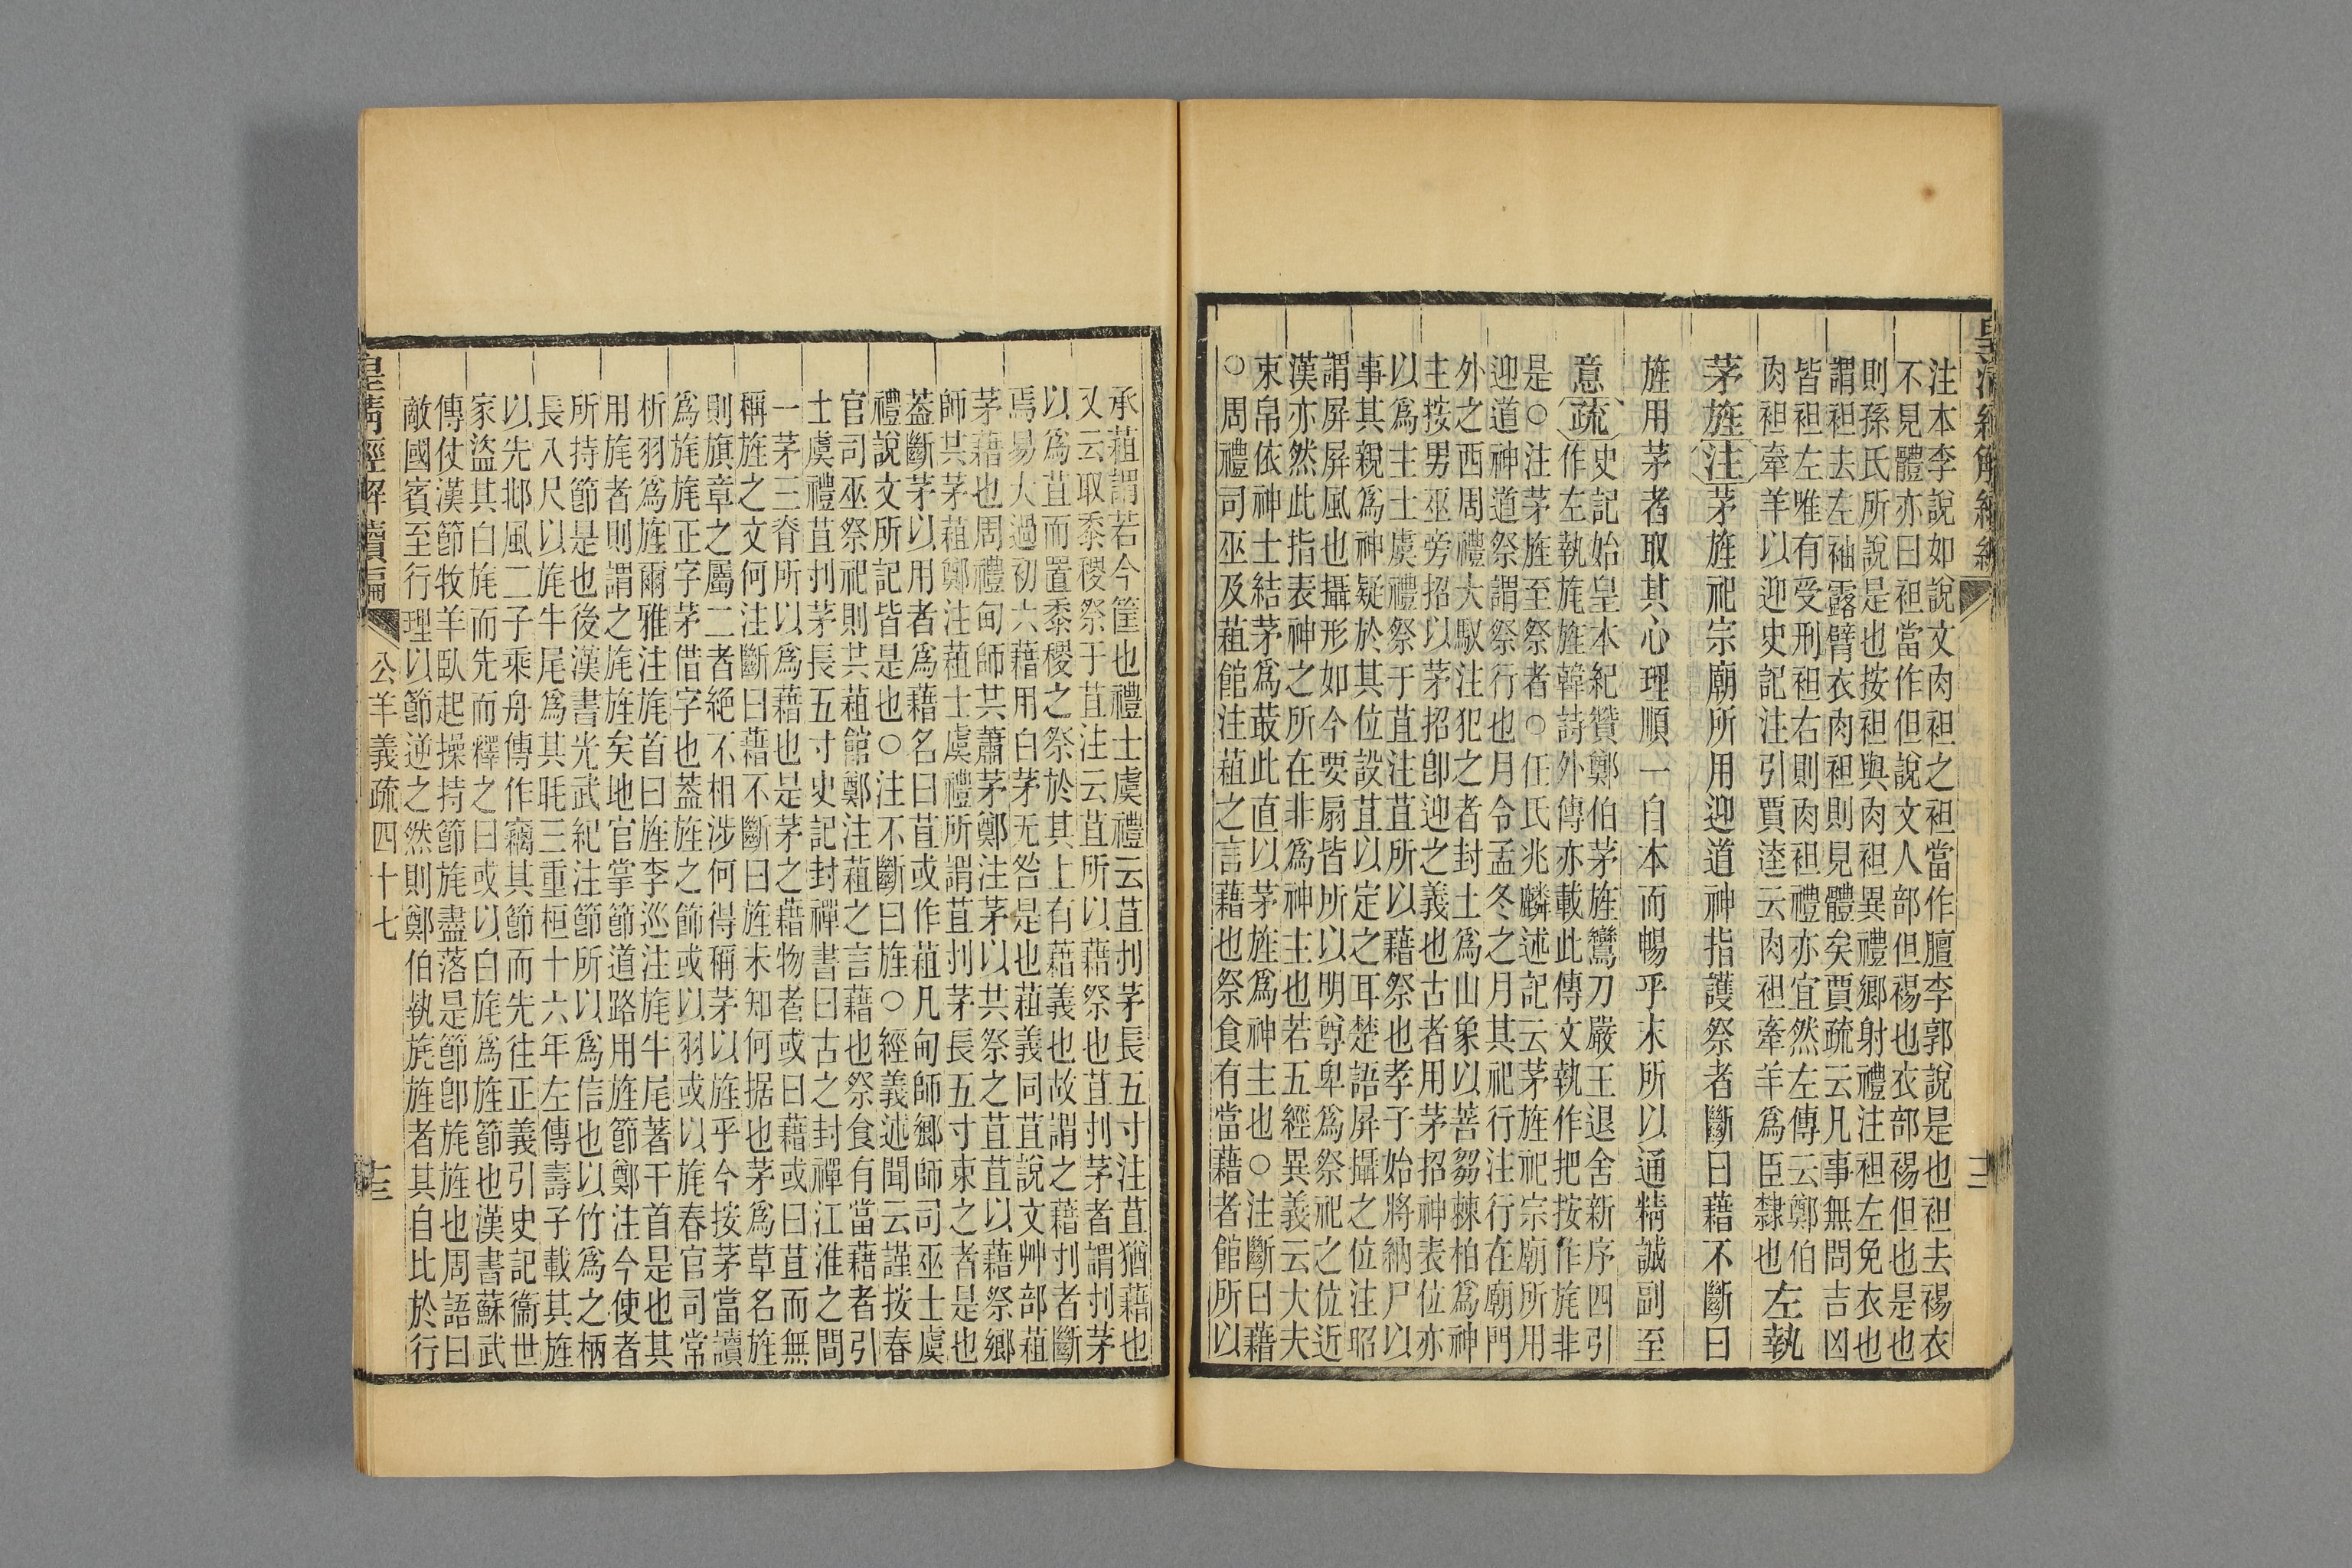 皇清經解續編
注本李說如說文肉袒之袒當作膻李郭說是也袒去裼衣
不見體亦曰袒當作但說文人部但裼也衣部裼但也是也
則孫氏所說是也按袒與肉袒異禮鄉射禮注袒左免衣也
謂袒去左袖露臂衣肉袒則見體矣賈疏云凡事無問吉凶
皆袒左唯有受刑袒右則肉袒禮亦宜然左傳云鄭伯
肉袒牽羊以迎史記注引賈逵云肉袒牽羊爲臣隸也
左執
茅旌注茅旌祀宗廟所用迎道神指護祭者斷曰藉不斷曰
旌用茅者取其心理順一自本而暢乎末所以通精誠副至
意疏
史記始皇本紀贊鄭伯茅旌鸞刀嚴王退舍新序四引
作左執旄旌韓詩外傳亦載此傳文執作把按作旄非
是○注茅旌至祭者○任氏兆麟述記云茅旌祀宗廟所用
迎道神道祭謂祭行也月令孟冬之月其祀行注行在廟門
外之西周禮大馭注犯之者封土爲山象以菩芻棘柏爲神
主按男巫旁招以茅招卽迎之義也古者用茅招神表位亦
以爲主士虞禮祭于苴注苴所以藉祭也孝子始將納尸以
事其親爲神疑於其位設苴以定之耳楚語屏攝之位注昭
謂屏屏風也攝形如今要扇皆所以明尊卑爲祭祀之位近
漢亦然此指表神之所在非爲神主也若五經異義云大夫
束帛依神士結茅爲菆此直以茅旌爲神主也○注斷曰藉
○周禮司巫及蒩館注蒩之言藉也祭食有當藉者館所以
承蒩謂若今筐也禮士虞禮云苴刌茅長五寸注苴猶藉也
又云取黍稷祭于苴注云苴所以藉祭也苴刌茅者謂刌茅
以爲苴而置黍稷之祭於其上有藉義也故謂之藉刌者斷
焉易大過初六藉用白茅无咎是也蒩義同苴說文艸部蒩
茅藉也周禮甸師共蕭茅鄭注茅以共祭之苴苴以藉祭鄉
師共茅蒩鄭注蒩士虞禮所謂苴刌茅長五寸束之者是也
葢斷茅以用者爲藉名曰苴或作蒩凡甸師鄉師司巫士虞
禮說文所記皆是也○注不斷曰旌○經義述聞云謹按春
官司巫祭祀則共蒩館鄭注蒩之言藉也祭食有當藉者引
士虞禮苴刌茅長五寸史記封禪書曰古之封禪江淮之間
一茅三脊所以爲藉也是茅之藉物者或曰藉或曰苴而無
稱旌之文何注斷曰藉不斷曰旌未知何据也茅爲草名旌
則旗章之屬二者絕不相涉何得稱茅以旌乎今按茅當讀
爲旄旄正字茅借字也葢旌之飾或以羽或以旄春官司常
析羽爲旌爾雅注旄首曰旌李巡注旄牛尾著干首是也其
用旄者則謂之旄旌矣地官掌節道路用旌節鄭注今使者
所持節是也後漢書光武紀注節所以爲信也以竹爲之柄
長八尺以旄牛尾爲其毦三重桓十六年左傳壽子載其旌
以先邶風二子乘舟傳作竊其節而先往正義引史記衞世
家盜其白旄而先而釋之曰或以白旄爲旌節也漢書蘇武
傳仗漢節牧羊臥起操持節旄盡落是節卽旄旌也周語曰
敵國賓至行理以節逆之然則鄭伯執旄旌者其自比於行
皇清經解續編
公羊義疏四十七
十三